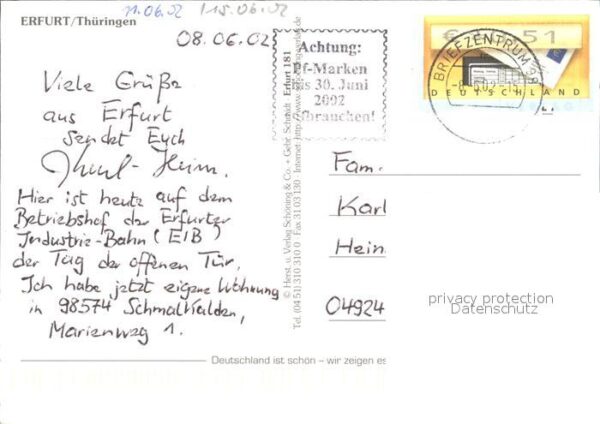 ERFURT/Thüringen
11.06.02 15.06.02
08.06.02
Viele Grüße
aus Erfurt
sendet Euch
Karl-Heinz.
Hier ist heute auf dem
Betriebshof der Erfurter
Industrie-Bahn (EIB)
der Tag der offenen Tür.
Ich habe jetzt eigene Wohnung
in 98574 Schmalkalden,
Marienweg 1.
Achtung:
Pf-Marken
bis 30. Juni
2002
aufbrauchen!
© Herst. u. Verlag Schöning & Co. + Gebr. Schmidt · Erfurt 181
Tel. (04 51) 310 310 0 · Fax 31 03 130 · Internet: http://www
€ 51
BRIEFZENTRUM
DEUTSCHLAND
Fam.
Karl
Hein
04924
privacy protection
Datenschutz
Deutschland ist schön – wir zeigen es